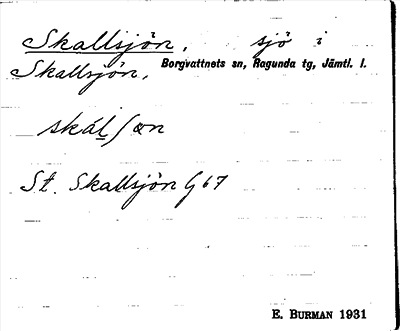 Skallsjön, sjö i
Skallsjön, Borgvattnets sn, Ragunda tg, Jämtl. l.
skál ʃœn
St. Skallsjön G 67
E. BURMAN 1931